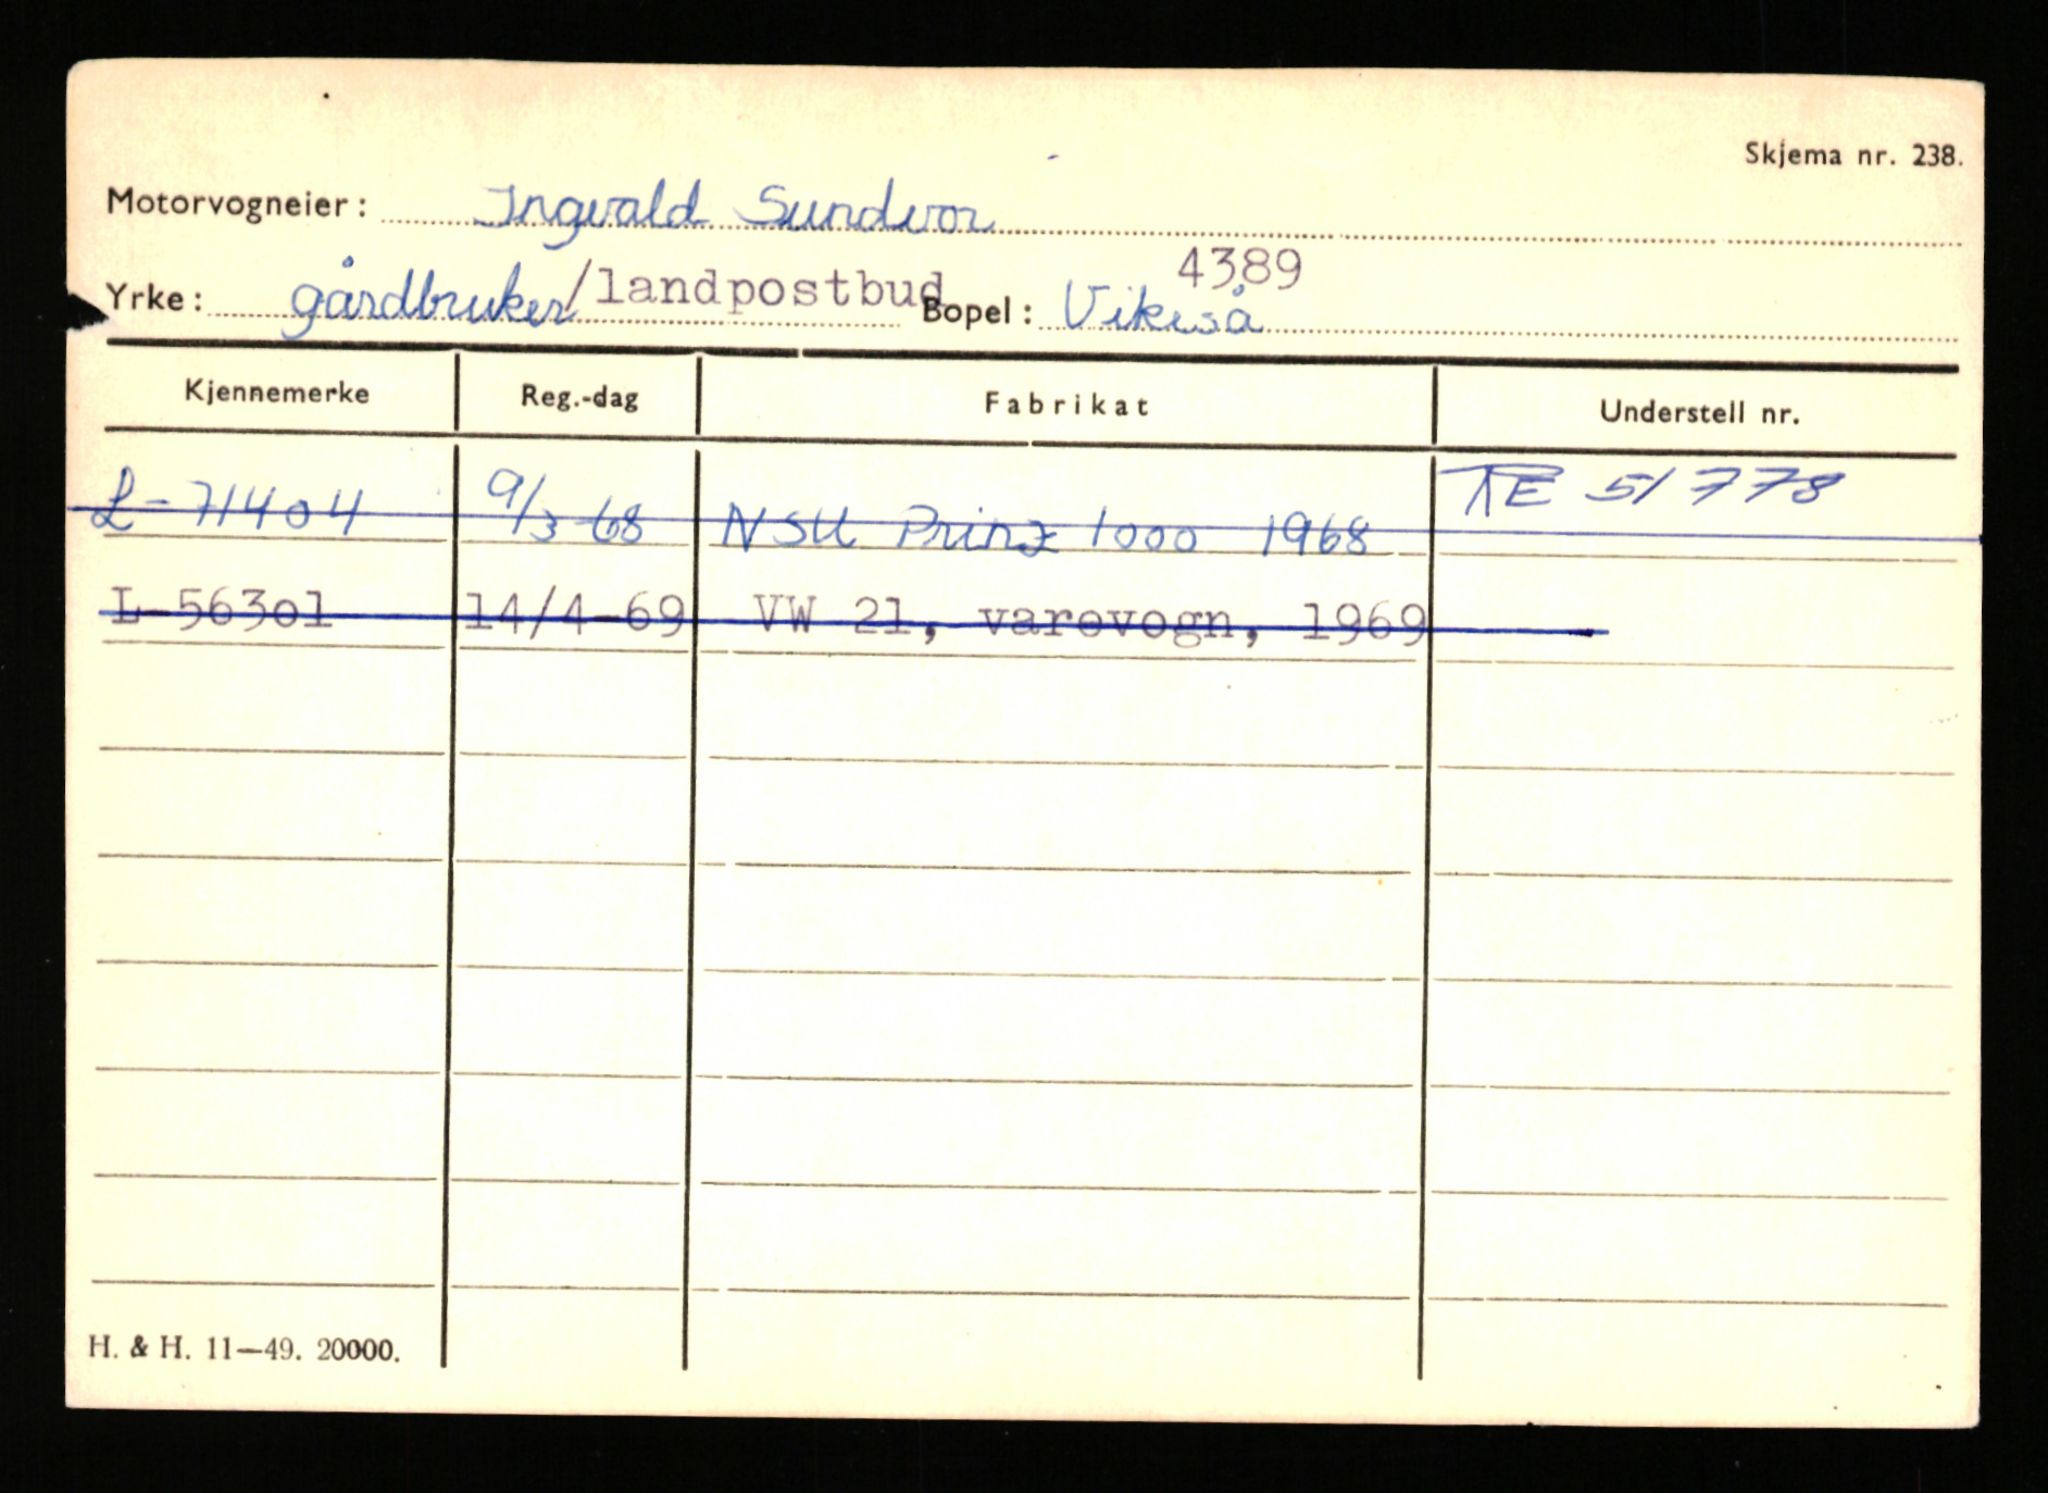 Skjema nr. 238.
Motorvogneier: Ingvald Sundvor
4389
Yrke: gårdbruker/landpostbud Bopel: Vikeså
Kjennemerke Reg.-dag Fabrikat Understell nr.
L-71404 9/3-68 NSU Prinz 1000 1968 TE 51778
L-56301 14/4-69 VW 21, varevogn, 1969
H. & H. 11—49. 20000.